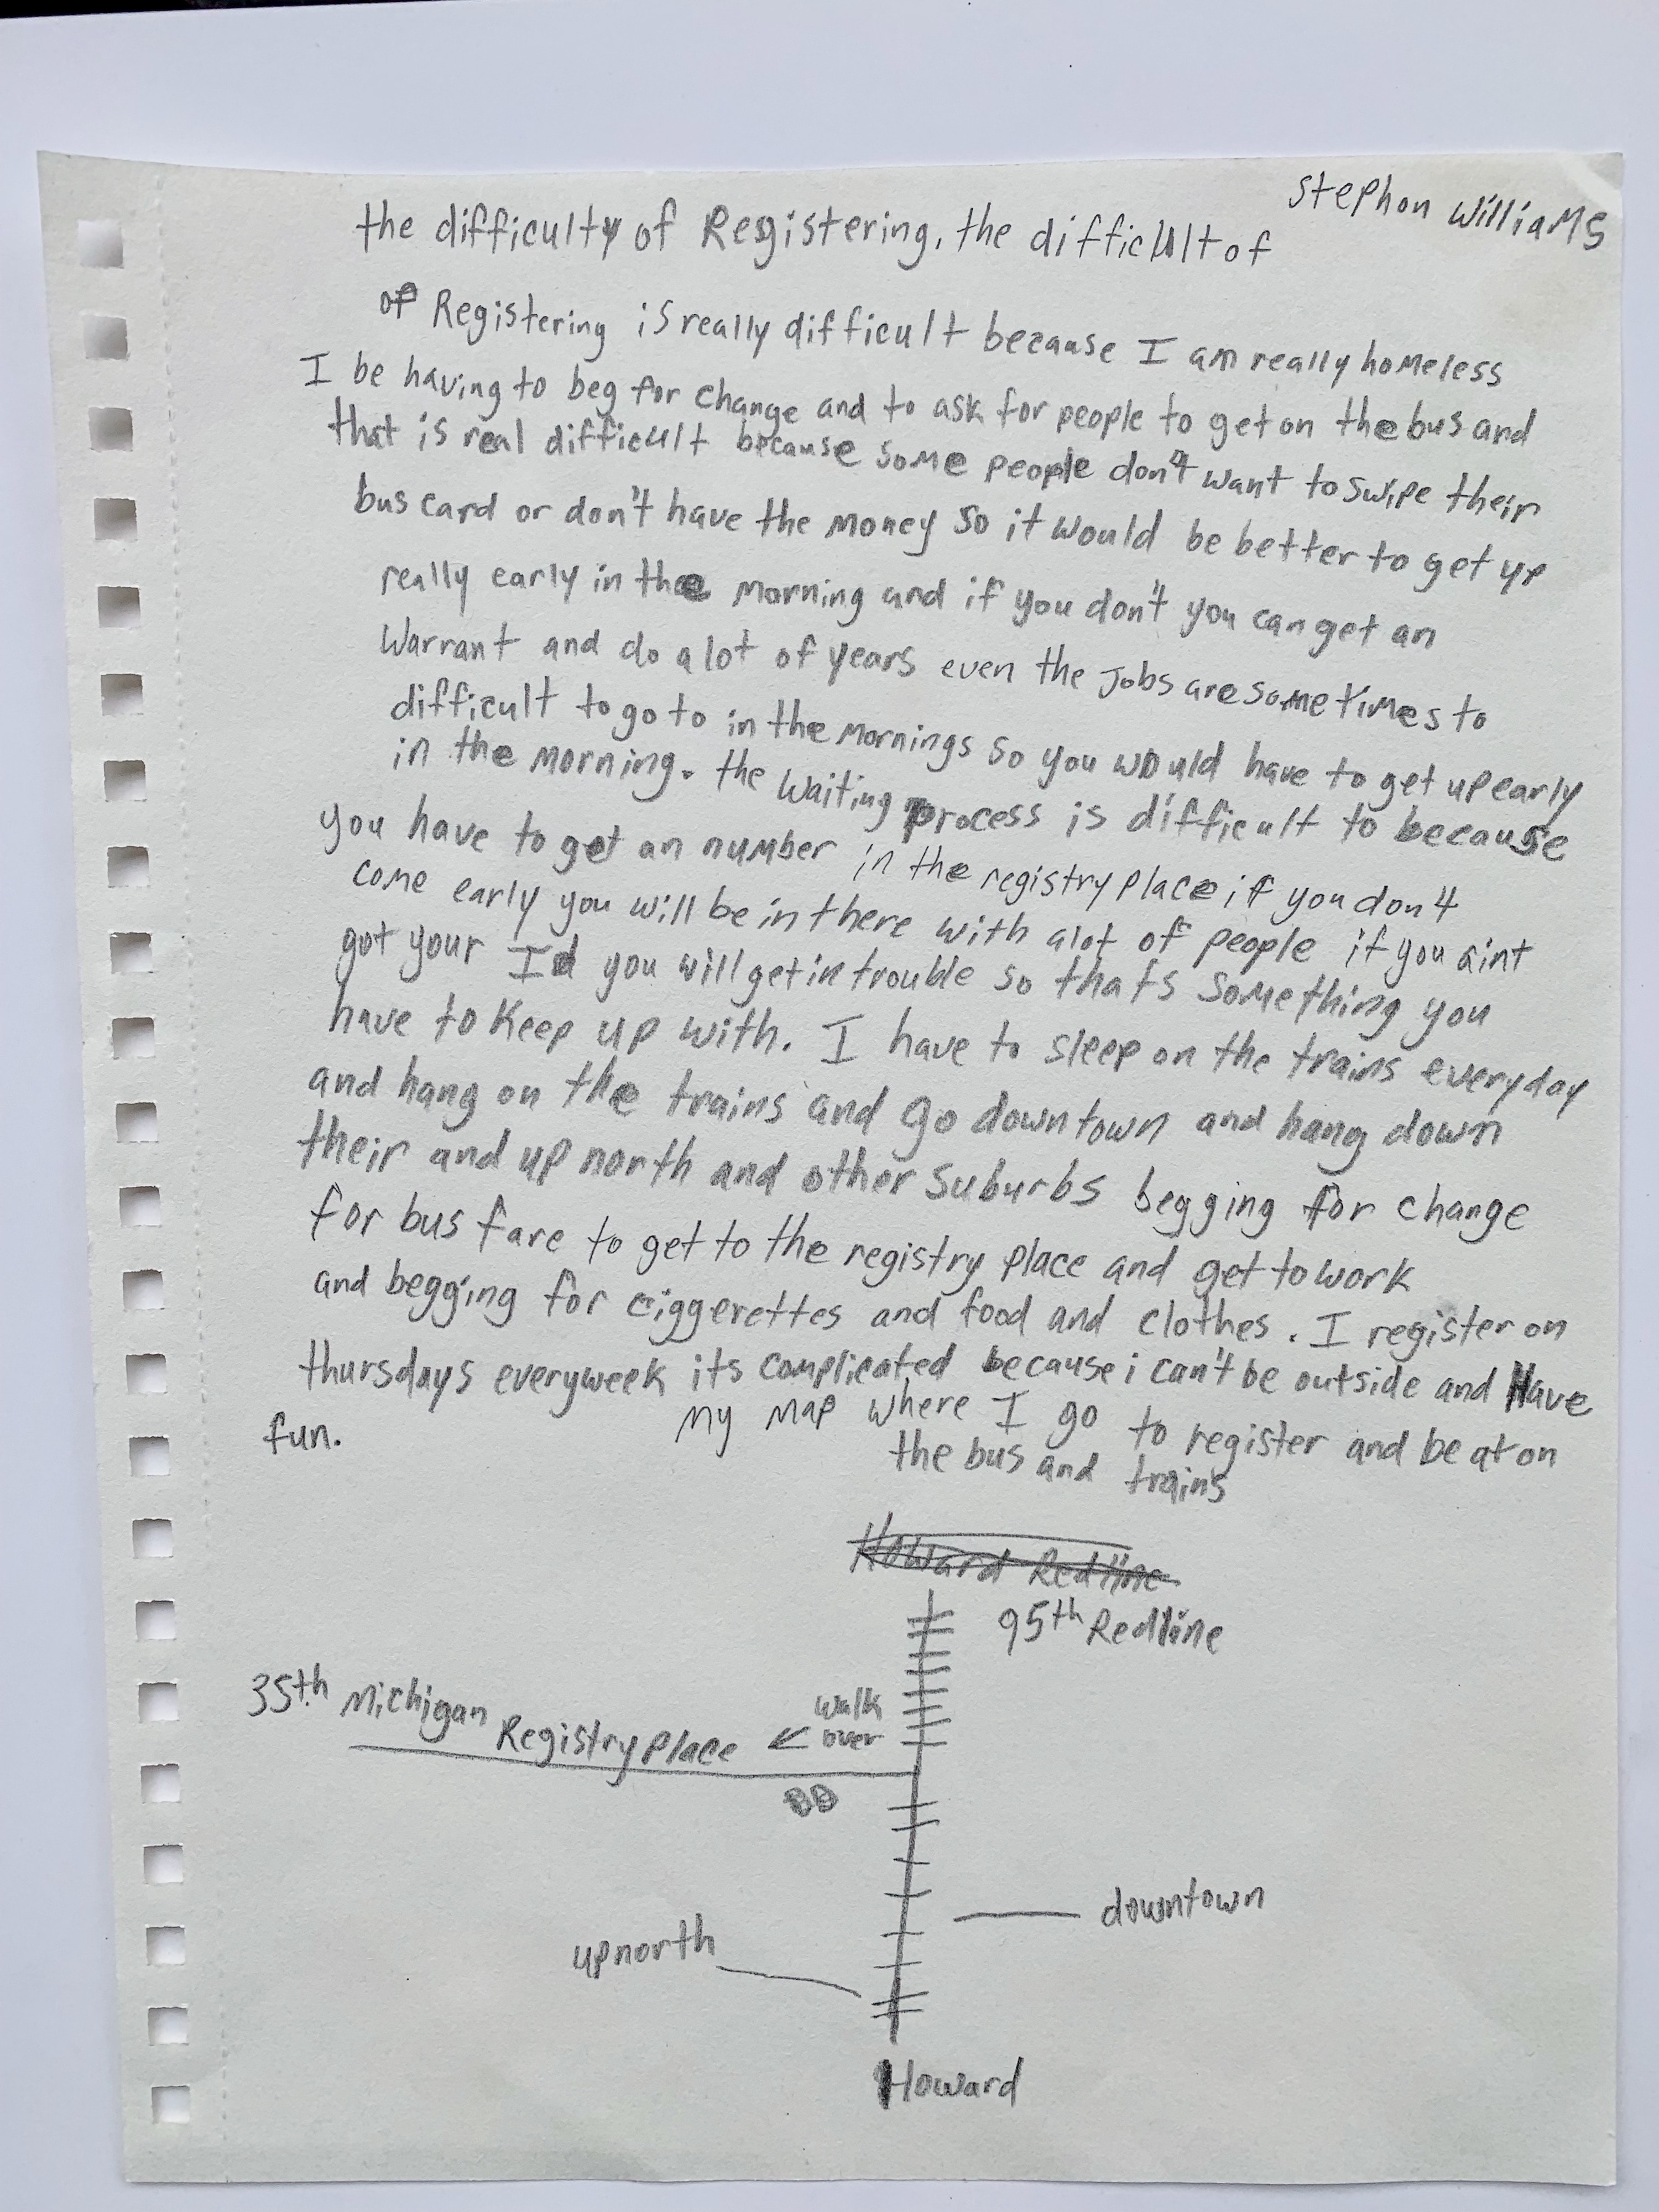 Stephon Williams
the difficulty of Registering, the difficult of
of Registering is really difficult because I am really homeless
I be having to beg for change and to ask for people to get on the bus and
that is real difficult because some people don't want to swipe their
bus card or don't have the money so it would be better to get up
really early in the morning and if you don't you can get an
Warrant and do a lot of years even the Jobs are sometimes to
difficult to go to in the mornings so you would have to get up early
in the morning. the waiting process is difficult to because
you have to get an number in the registry place if you don't
come early you will be in there with alot of people if you aint
got your Id you will get in trouble so thats something you
have to keep up with. I have to sleep on the trains everyday
and hang on the trains and go downtown and hang down
their and up north and other suburbs begging for change
for bus fare to get to the registry place and get to work
and begging for ciggerettes and food and clothes. I register on
thursdays everyweek its complicated because i can't be outside and Have
fun.
My map where I go to register and be at on
the bus and trains
Howard Redline
95th Redline
35th Michigan Registry place
walk
over
downtown
up north
Howard